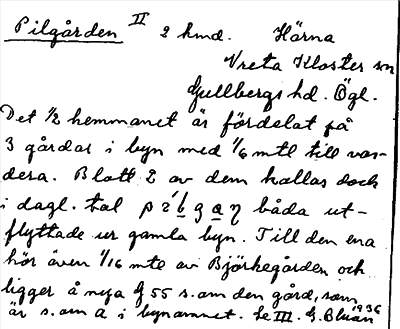 Pilgården II 2 hmd. Härna
Vreta Kloster sn
Gullbergs hd. Ögl.
Det 1/2 hemmanet är fördelat på
3 gårdar i byn med 1/6 mtl till var-
dera. Blott 2 av dem kallas dock
i dagl. tal båda ut-
flyttade ur gamla byn. Till den ena
hör även 1/16 mtl av Björkegården och
ligger å nya G 55 s.om den gård, som
är s.om a i bynamnet. Le III. G. 1936